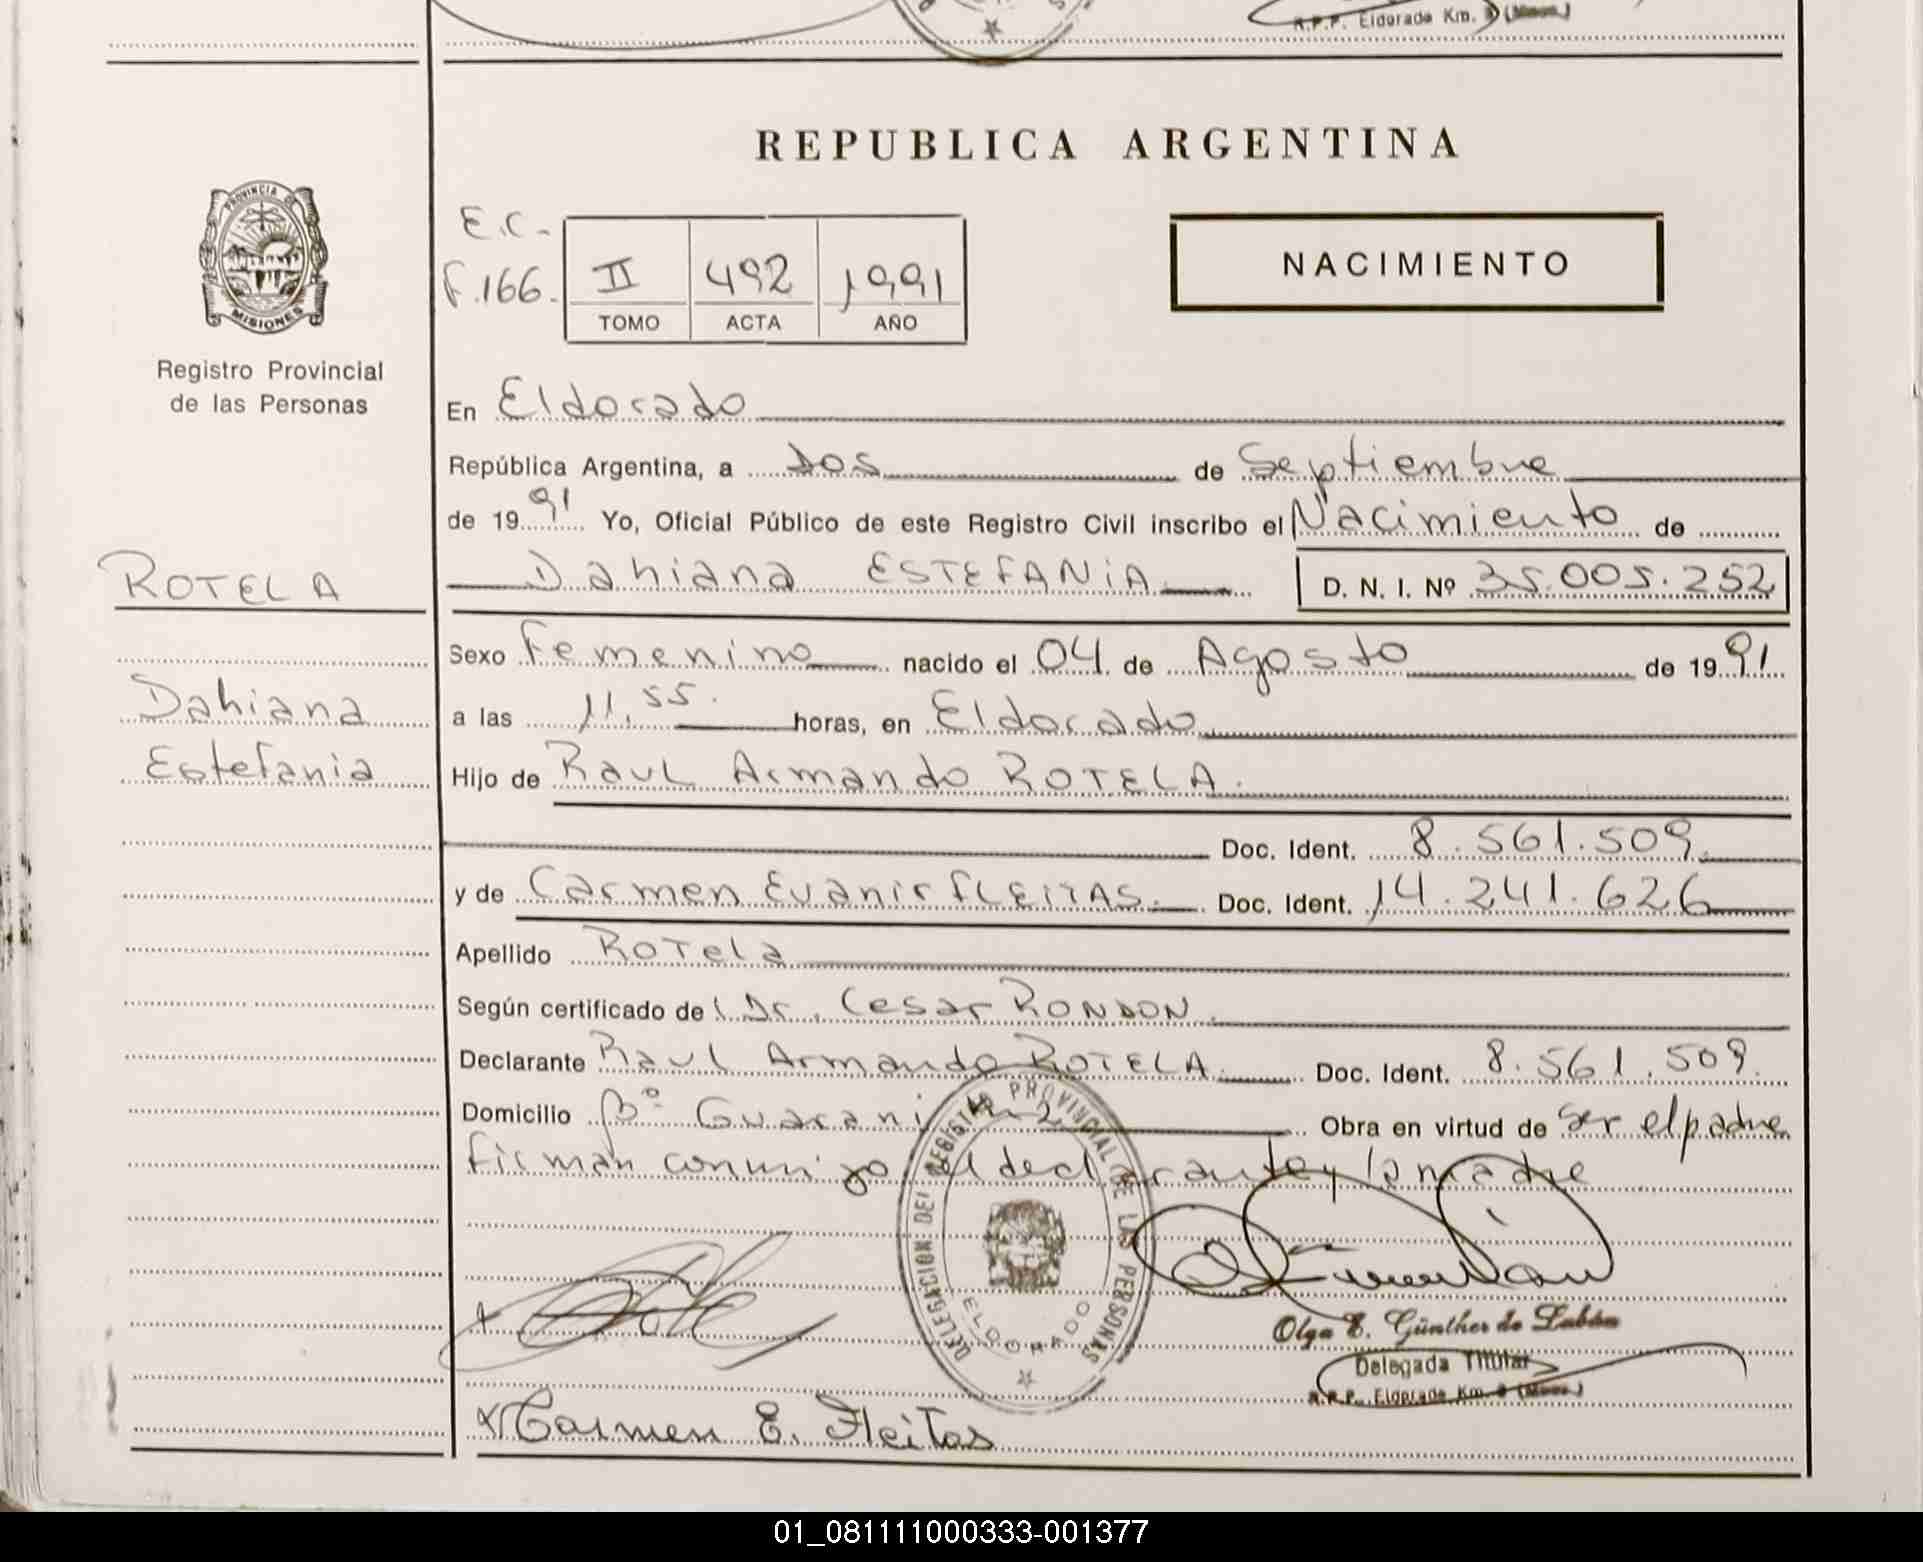 R.P.P. Eldorado Km. 9 (Mnes.)
REPUBLICA ARGENTINA
PROVINCIA DE MISIONES
Registro Provincial
de las Personas
E.C.-
F.166.
II 492 1991
TOMO ACTA AÑO
NACIMIENTO
En Eldorado
República Argentina, a Dos de Septiembre
de 1991 Yo, Oficial Público de este Registro Civil inscribo el Nacimiento de
ROTELA
Dahiana ESTEFANIA D. N. I. Nº 35.005.252
Sexo Femenino nacido el 04 de Agosto de 1991
Dahiana
a las 11,55. horas, en Eldorado
Estefania
Hijo de Raul Armando ROTELA.
Doc. Ident. 8.561.509
y de Carmen Evanir FLEITAS. Doc. Ident. 14.241.626
Apellido Rotela
Según certificado de Dr. Cesar RONDON.
Declarante Raul Armando ROTELA Doc. Ident. 8.561.509.
Domicilio Bº Guarani Km 2 Obra en virtud de ser el padre
firman conmigo el declarante y la madre
DELEGACION DEL REGISTRO PROVINCIAL DE LAS PERSONAS
ELDORADO
Olga E. Günther de Lubán
Delegada Titular
R.P.P. Eldorado Km. 9 (Mnes.)
x Carmen E. Fleitas
01_081111000333-001377